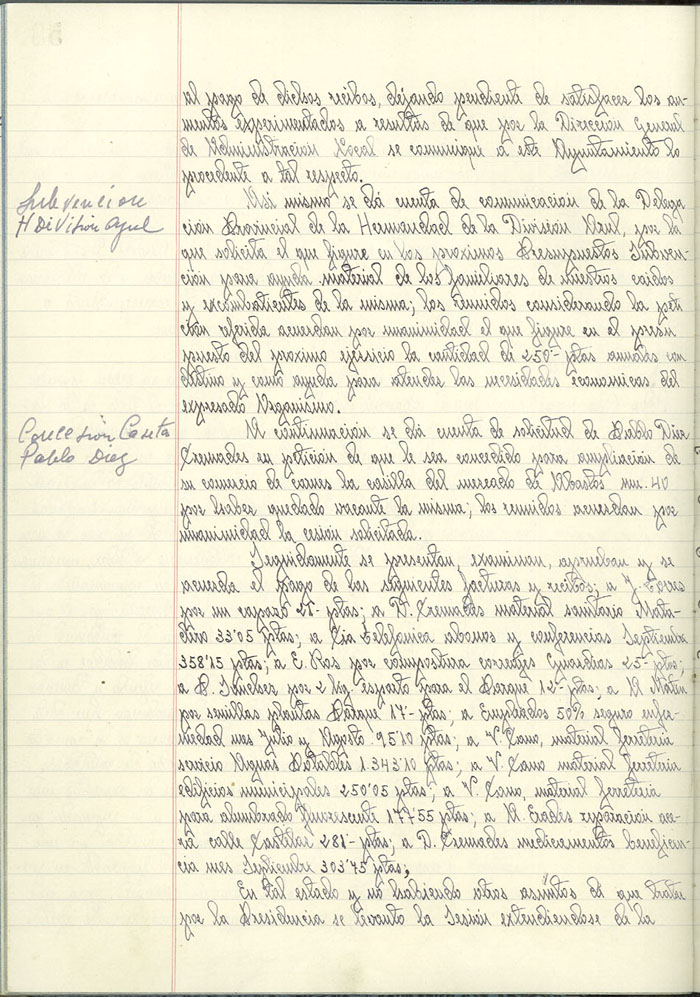 al pago de dichos recibos, dejando pendiente de satisfacer los au-
mentos experimentados a resultas de que por la Direccion General
de Administracion Local se comunique a este Ayuntamiento lo
procedente a tal respecto.
Subvencion
H División Azul
Asi mismo se dá cuenta de comunicacion de la Delega-
ción Provincial de la Hermandad de la División Azul, por la
que solicita el que figure en los proximos Presupuestos Subven-
ción para ayuda material de los familiares de nuestros caidos
y excombatientes de la misma; los reunidos considerando la peti-
ción referida acuerdan por unanimidad el que figure en el presu-
puesto del proximo ejercicio la cantidad de 250'- ptas anuales con
destino y como ayuda para atender las necesidades economicas del
expresado Organismo.
Concesión Caseta
Pablo Diez
A continuación se dá cuenta de solicitud de Pablo Diez
Cremades en petición de que le sea concedido para ampliacion de
su comercio de carnes la casilla del mercado de Abastos num. 40
por haber quedado vacante la misma; los reunidos acuerdan por
unanimidad la cesión solicitada.
Seguidamente se presentan, examinan, aprueban y se
acuerda el pago de las siguientes facturas y recibos; a J.
por un capazo 25'- ptas; a D. Cremades material sanitario Mata-
dero 33'05 ptas; a Cia Telefonica abonos y conferencias Septiembre
358'15 ptas; a E. Ras por compostura correajes Guardias 25'- ptas;
a P. Sanchez por 2 kg. esparto para el Parque 12'- ptas; a M
por semillas plantas Parque 17'- ptas; a Empleados 50% seguro enfer-
medad mes Julio y Agosto 95'10 ptas; a V. Cano, material ferreteria
servicio Aguas Potables 1.343'10 ptas; a V. Cano material ferreteria
edificios municipales 250'05 ptas; a V. Cano, material ferreteria
para alumbrado fluorescente 177'55 ptas; a M. reparacion ace-
ra calle Castelar 281'- ptas; a D. Cremades medicamentos beneficen-
cia mes Septiembre 303'75 ptas;
En tal estado y no habiendo otros asuntos de que tratar
por la Presidencia se levanto la Sesión extendiendose de la